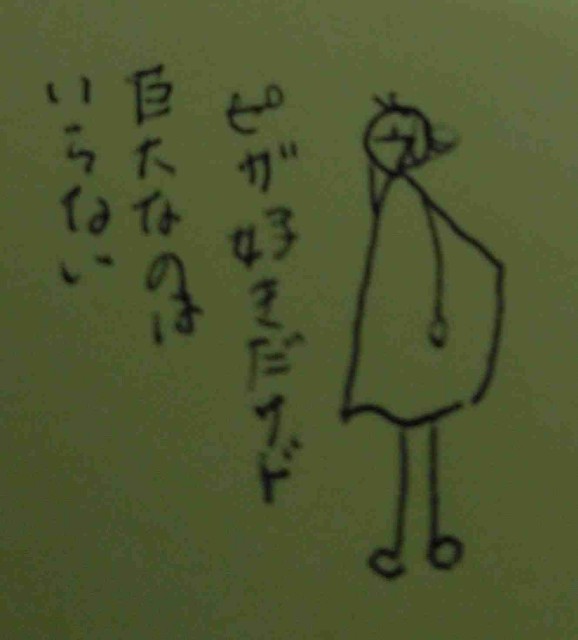 ピが好きだケド
巨大なのは
いらない